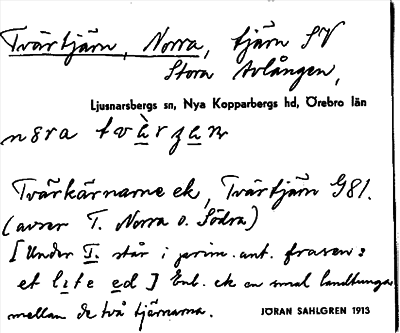 Tvärtjärn, Norra, tjärn SV
Stora Avlången,
Ljusnarsbergs sn, Nya Kopparbergs hd, Örebro län
Tvärkärnarne ek, Tvärtjärn G81.
(avser T. Norra o. Södra)
[Under T. står i prim. ant. frasen:
et lite ed] Enl. ek en smal landtunga
mellan de två tjärnarna.
JÖRAN SAHLGREN 1913